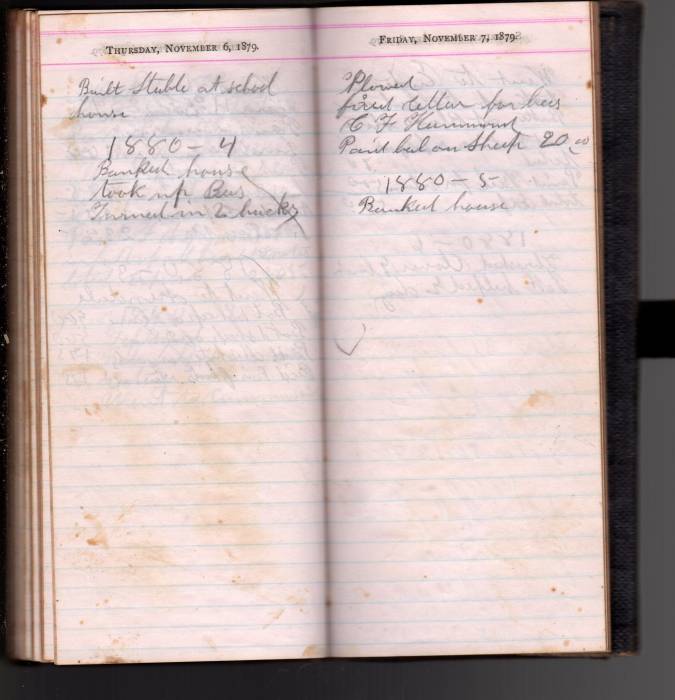 THURSDAY, NOVEMBER 6, 1879.
Built Stable at school
house
1880 - 4
Banked house
took up Bees
Turned in 2 bucks
FRIDAY, NOVEMBER 7, 1879.
Plowed
fixed cellar for bees
C F Hammond
Paid bal on Sheep 20.00
1880 - 5
Banked house